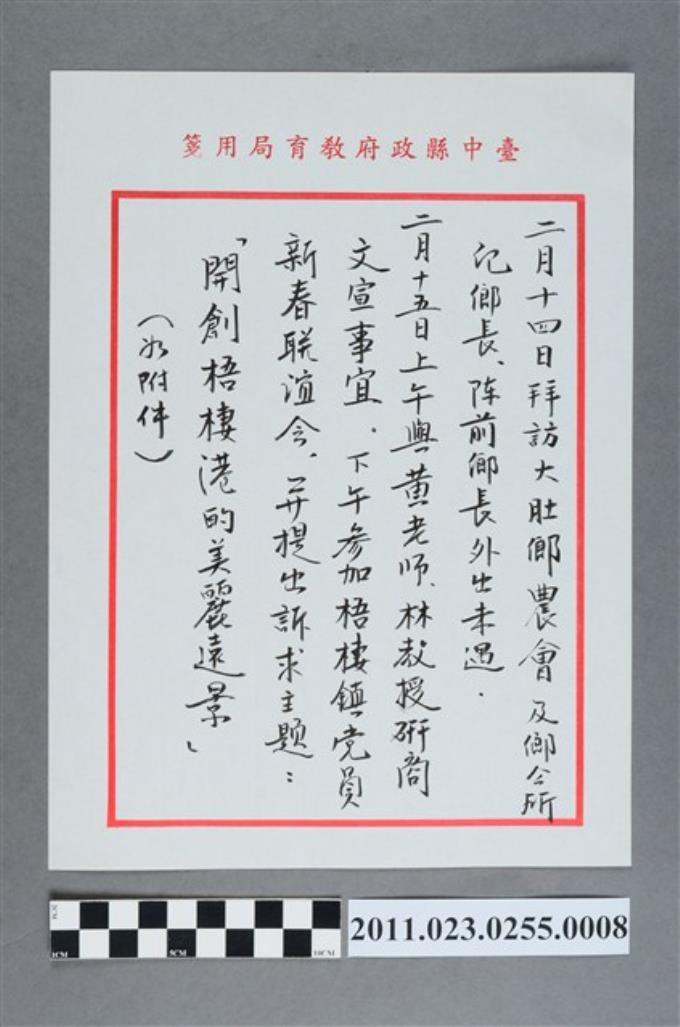 臺中縣政府教育局用箋
二月十四日拜訪大肚鄉農會及鄉公所
記鄉長、陈前鄉長外出未遇.
二月十五日上午與黃老师、林教授研商
文宣事宜.下午參加梧棲鎮党員
新春联誼会、并提出訴求主題:
「開創梧棲港的美麗遠景」
(如附件)
1CM 5CM 10CM
2011.023.0255.0008